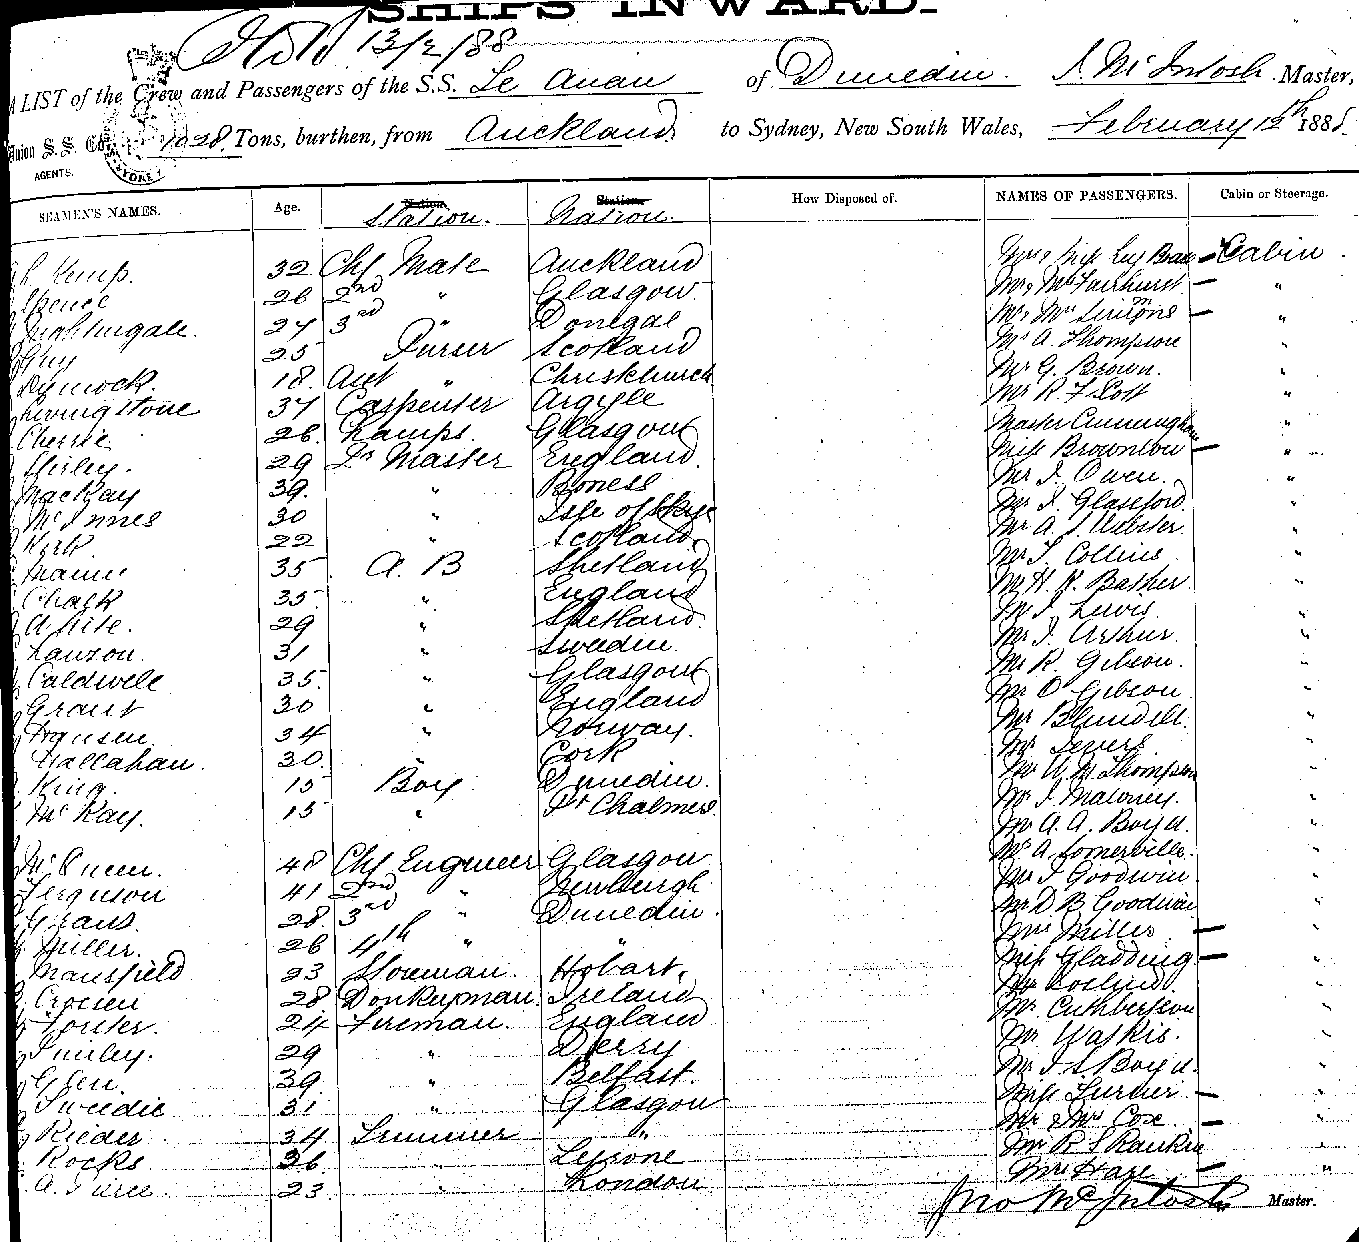 SHIPS INWARD.
13/2/88
A LIST of the Crew and Passengers of the S.S. Te Anau of Dunedin. J. McIntosh. Master,
Union S. S. Co. 1028 Tons, burthen, from Auckland to Sydney, New South Wales, February 13th 1888
AGENTS.
SEAMEN'S NAMES. Age. Station. Nation. How Disposed of. NAMES OF PASSENGERS. Cabin or Steerage.
Kemp. 32 Chf Mate Auckland Cabin
Spence 26 2nd " Glasgow Mr & Mrs Fairhurst "
Nightingale. 27 3rd " Donegal Mr & Mrs Simmons "
Guy 25 Purser Scotland Mr A. Thompson "
Dymock. 18. Asst " Christchurch Mr G. Brown. "
Livingstone 37 Carpenter Argyle Mr R F Lott "
Cherrie 26. Lamps. Glasgow Master Cunningham "
Shirley. 29 Qr Master England. Miss Brownlow "
MacKay 39. " Boness Mr J. Owen. "
McInnes 30 " Isle of Skye Mr J. Glassford. "
Kirk 22 " Scotland. Mr A. J. Webster "
35 A. B Shetland Mr T. Collins "
Chalk 35 " England Mr H. Barber "
White. 29 " Shetland. Mr J. Lewis "
31 " Sweden. Mr J. Arthur "
Caldwell 35. " Glasgow Mr R. Gibson. "
Grant 30 " England Mr O. Gibson "
Hansen 34 " Norway. Mr Blundell. "
Hallahan. 30. " Cork Mr Severs. "
King. 15 Boy Dunedin. Mr W. M. Thompson "
McKay. 15 " Pt Chalmers. Mr J. Maloney. "
Mr A. A. Boyd. "
McQueen. 48 Chf Engineer Glasgow Mr A Somerville. "
Ferguson 41 2nd " Newburgh Mr J Goodwin "
Grant 28. 3rd " Dunedin. Mr D B Goodwin "
Miller. 26 4th " " "
Mansfield 23 Storeman. Hobart. Miss Gladding. "
28. Donkeyman. Ireland "
24 Fireman. England Mr Cuthbertson "
29 " Derry Mr Watkis. "
Glen. 39 " Belfast. Mr J S Boyd. "
Tweedie 31 " Glasgow Miss Turner "
Rieder 34 Trimmer " Mr & Mrs Cox "
Rocks 36 " Tyrone Mr R S Rankin "
A. 23 " London "
Jno McIntosh Master.